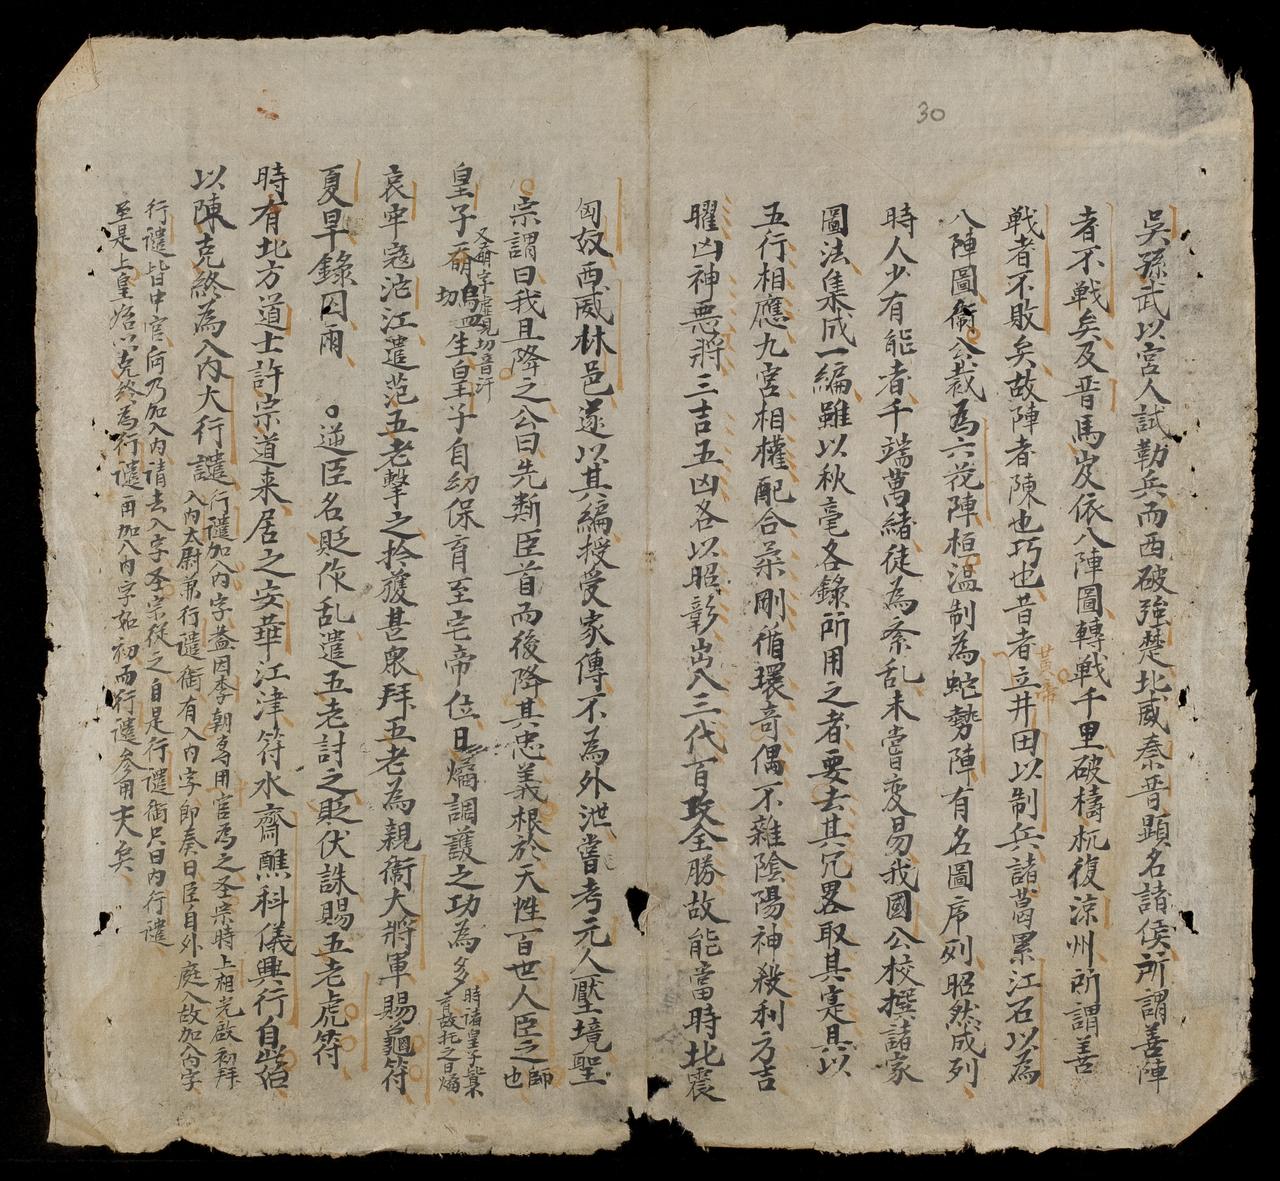 30
吳孫武以宮人試勒兵而西破強楚北威秦晋顯名諸侯所謂善陣
者不戰矣及晋馬岌依八陣圖轉戰千里破檮杌復凉州所謂善
戰者不敗矣故陣者陳也巧也昔者黃帝立井田以制兵諸葛累江石以為
八陣圖衛公裁為六花陣桓溫制為蛇勢陣有名圖序列昭然成列
時人少有能者千端萬緒徒為紊乱未嘗变易我國公校撰諸家
圖法集成一編雖以秋毫各錄所用之者要去其冗畧取其寔具以
五行相應九宮相權配合柔剛循環竒偶不雜陰陽神殺利方吉
曜凶神惡將三吉五凶各以昭彰出入三代百攻全勝故能當時北震
匈奴西威林邑遂以其編授受家傳不為外泄嘗考元人壓境聖
宗謂曰我且降之公曰先斷臣首而後降其忠義根於天性百世人臣之師也
皇子生皇子自幼保育至宅帝位日熽調護之功為多
時諸皇子育故托之日熽
哀牢寇沱江遣范五老擊之捡獲甚衆拜五老為親衛大將軍賜龜符
夏旱錄囚雨 逆臣名貶作乱遣五老討之貶伏誅賜五老虎符
時有北方道士許宗道来居之安華江津符水齋醮科儀興行自此始
以陳克終為入內大行譴
行譴加入內字盖因李朝為用官為之圣宗時上相光啟初拜
入內太尉兼行譴銜有入內字即奏曰臣自外庭入故加入內字
行譴皆中官何乃加入內请去入字圣宗從之自是行譴銜只曰內行譴
至是上皇始以克終為行譴再加入內字如初而行譴参用士夫矣